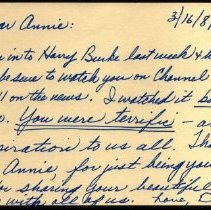 ar Annie: 3/16/8
n into Harry Burke last week &
be sure to watch you on Channel
11 on the news. I watched it
o. You were terrific – a
piration to us all. Tha
Annie, for just being you
sharing your beautiful
with all of us. Love, D